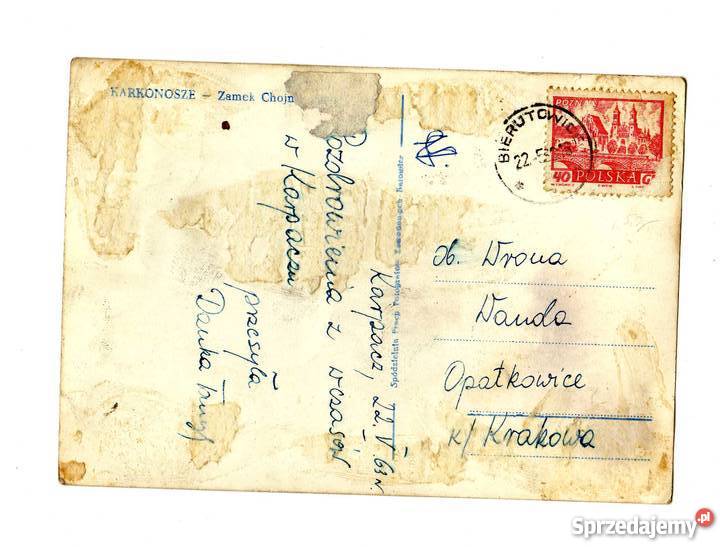 KARKONOSZE – Zamek Chojn
Karpacz, 22.V.63 r.
Pozdrowienia z wczasów
w Karpaczu
przesyła
Danka
Spółdzielnia Pracy Fotografików Zawodowych Katowice
BIERUTOWIC
22.-5
POZNAŃ
40 POLSKA G
ob. Wrona
Wanda
Opatkowice
k/ Krakowa
Sprzedajemy.pl